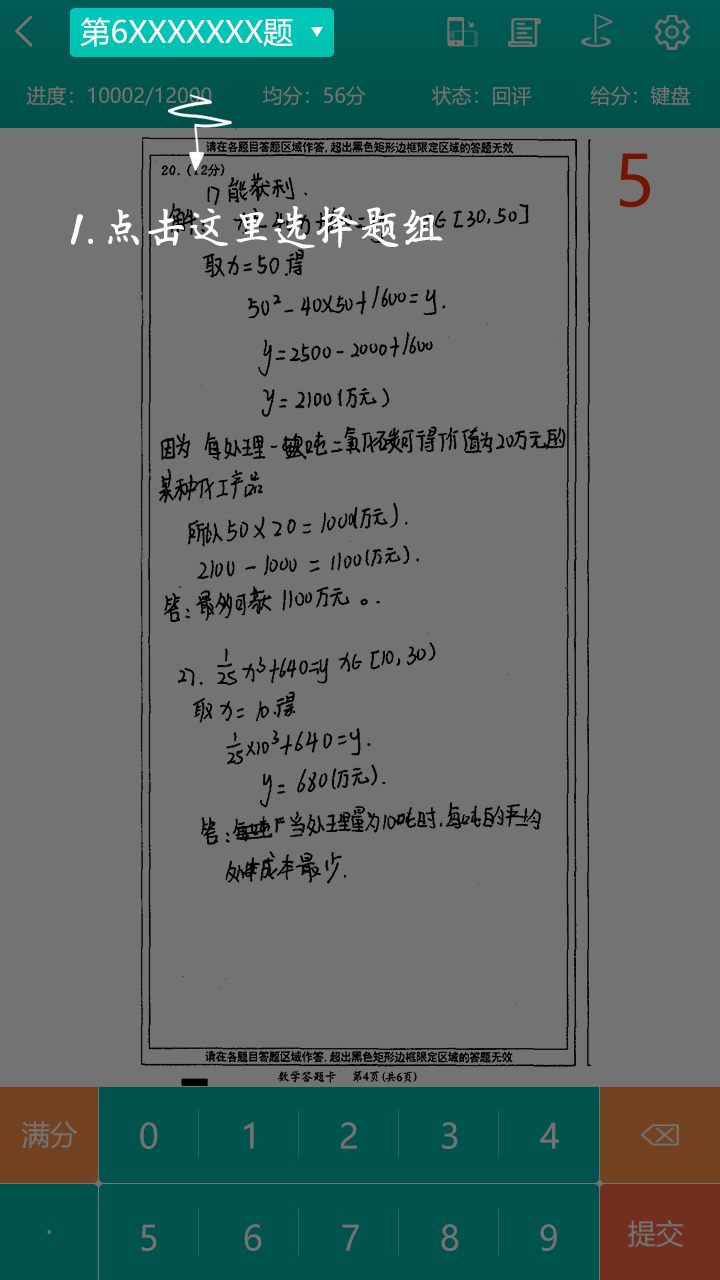 第6XXXXXXX题
进度：10002/12000 均分：56分 状态：回评 给分：键盘
请在各题目答题区域作答，超出黑色矩形边框限定区域的答题无效
5
20.（12分）
1) 能获利.
1.点击这里选择题组
∈[30,50]
取x=50得
50²-40×50+1600=y.
y=2500-2000+1600
y=2100(万元)
因为 每处理一吨二氧化碳可得价值为20万元的
某种化工产品
所以50×20=1000(万元).
2100-1000=1100(万元).
答:最多可获1100万元。.
27. 1/25x³+640=y x∈[10,30)
取x=10.得
1/25×10³+640=y.
y=680(万元).
答: 当处理量为10吨时.每吨的平均
处理成本最少.
请在各题目答题区域作答，超出黑色矩形边框限定区域的答题无效
数学答题卡 第4页(共6页)
满分 0 1 2 3 4
. 5 6 7 8 9 提交